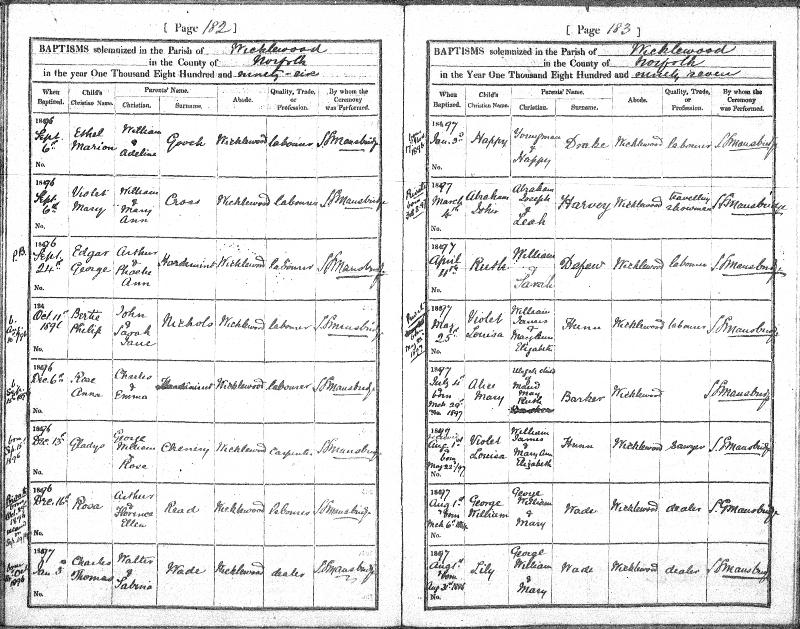 [ Page 182 ]
BAPTISMS solemnized in the Parish of Wicklewood
in the County of Norfolk
in the year One Thousand Eight Hundred and ninety-six
When Baptized. Child's Christian Name. Parents' Name. Christian. Surname. Abode. Quality, Trade, or Profession. By whom the Ceremony was Performed.
1896 Sept 6th No. Ethel Marion William & Adeline Gooch Wicklewood labourer S S Mansbridge
1896 Sept 6th No. Violet Mary William & Mary Ann Cross Wicklewood labourer S S Mansbridge
P.B. 1896 Sept 24th No. Edgar George Arthur & Phoebe Ann Wicklewood labourer S S Mansbridge
Oct 11th 1896 No. Bertie Philip John & Sarah Jane Nichols Wicklewood labourer S S Mansbridge
1896 Dec. 6th No. Rose Anna Charles & Emma Wicklewood labourer S S Mansbridge
1896 Dec. 13th No. Gladys George William & Rose Cheney Wicklewood carpenter S S Mansbridge
1896 Dec. 16th No. Rosa Arthur & Florence Ellen Read Wicklewood labourer S S Mansbridge
1897 Jan 3rd No. Charles Thomas Walter & Sabina Wade Wicklewood dealer S S Mansbridge
[ Page 183 ]
BAPTISMS solemnized in the Parish of Wicklewood
in the County of Norfolk
in the Year One Thousand Eight Hundred and ninety seven
When Baptized. Child's Christian Name. Parents' Name. Christian. Surname. Abode. Quality, Trade, or Profession. By whom the Ceremony was Performed.
1897 Jan. 3rd No. Happy Youngman & Happy Drake Wicklewood labourer S S Mansbridge
1897 March 4th No. Abraham John Abraham Joseph & Leah Harvey Wicklewood travelling showman S S Mansbridge
1897 April 11th No. Ruth William & Sarah Wicklewood labourer S S Mansbridge
1897 May 25th No. Violet Louisa William James & Mary Ann Elizabeth Hunn Wicklewood labourer S S Mansbridge
1897 July 4th born No. 1897 Alice Mary Maud May Ruth Barker Wicklewood S S Mansbridge
1897 Aug 1st & born May 22/97 No. Violet Louisa William James & Mary Ann Elizabeth Hunn Wicklewood Sawyer S S Mansbridge
1897 Aug 1st & born No. George William George William & Mary Wade Wicklewood dealer S S Mansbridge
1897 Aug 1st & born Aug 31st 1896 No. Lily George William & Mary Wade Wicklewood dealer S S Mansbridge